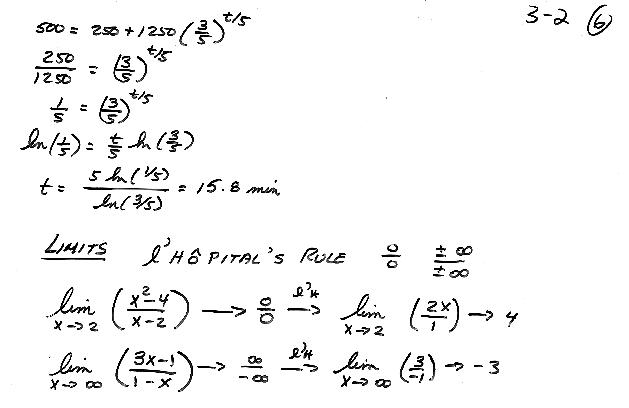 3-2 ⑥
500 = 250 + 1250 (3/5)^t/5
250/1250 = (3/5)^t/5
1/5 = (3/5)^t/5
ln(1/5) = t/5 ln(3/5)
t = 5 ln(1/5)/ln(3/5) = 15.8 min
LIMITS l'HÔPITAL'S RULE 0/0 ±∞/±∞
lim x→2 (x²-4/x-2) → 0/0 l'H→ lim x→2 (2x/1) → 4
lim x→∞ (3x-1/1-x) → ∞/-∞ l'H→ lim x→∞ (3/-1) → -3